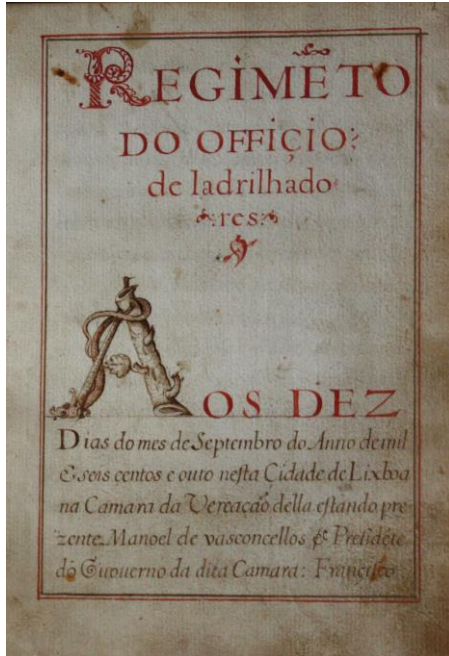 REGIMẼTO
DO OFFIÇIO
de ladrilhado
res
AOS DEZ
Dias do mes de Septembro do Anno de mil
& seis centos e outo nesta Çidade de Lixboa
na Camara da Vereação della estando pre
zente Manoel de vasconcellos Presidẽte
do Guouerno da dita Camara: Francisco